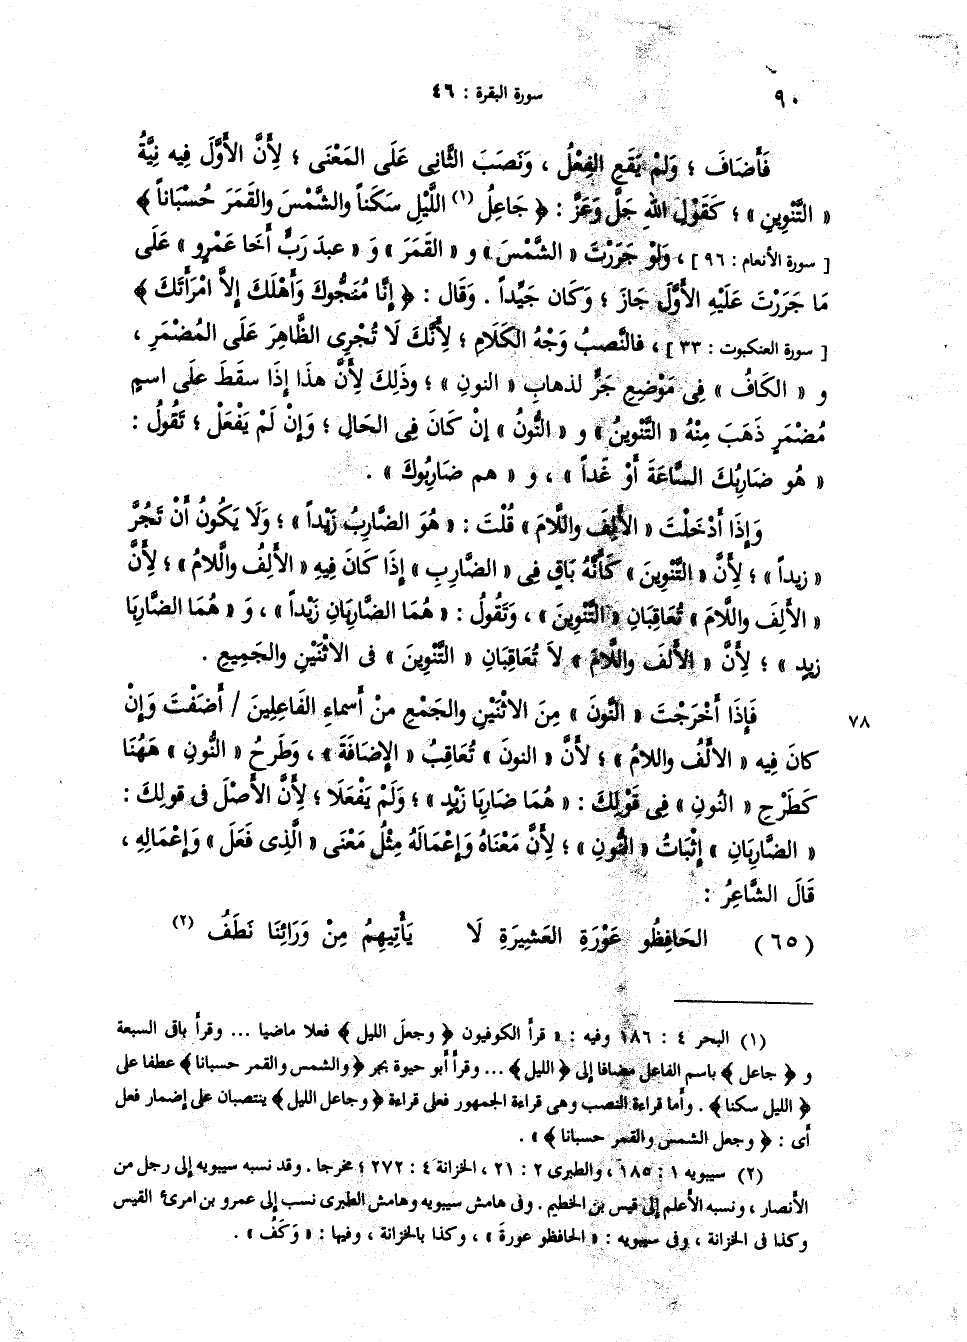 ٩٠
سورة البقرة : ٤٦
فَأَضَافَ ؛ وَلَمْ يَقَعِ الفِعْلُ ، وَنَصَبَ الثَّانِى عَلَى المَعْنَى ؛ لِأَنَّ الأَوَّلَ فِيه نِيَّةُ
« التَّنْوِينِ » ؛ كَقَوْلِ اللهِ جَلَّ وَعَزَّ : ﴿ جَاعِلُ (١) اللَّيْلِ سَكَناً والشَّمْسَ والقَمَرَ حُسْبَاناً ﴾
[ سورة الأنعام : ٩٦ ] ، وَلَوْ جَرَرْتَ « الشَّمْسَ » و « القَمَرَ » وَ « عبدَ رَبٍّ أَخَا عَمْرٍو » عَلَى
مَا جَرَرْتَ عَلَيْهِ الأَوَّلَ جَازَ ؛ وَكَان جَيِّداً . وَقَال : ﴿ إِنَّا مُنَجُّوكَ وَأَهْلَكَ إِلاَّ امْرَأَتَكَ ﴾
[ سورة العنكبوت : ٣٣ ] ، فالنَّصبُ وَجْهُ الكَلَامِ ؛ لِأَنَّكَ لَا تُجْرِى الظَّاهِرَ عَلَى المُضْمَرِ ،
و « الكَافُ » فِى مَوْضِعِ جَرٍّ لذهابِ « النونِ » ؛ وذَلِكَ لِأَنَّ هذَا إِذَا سقَطَ علَى اسمٍ
مُضْمَرٍ ذَهَبَ مِنْهُ « التَّنْوِينُ » و « النُّونُ » إنْ كَانَ فِى الحَالِ ؛ وَإِنْ لَمْ يَفْعَلْ ؛ تَقُولُ :
« هُو ضَارِبُكَ السَّاعَةَ أَوْ غَداً » ، و « هم ضَارِبُوكَ » .
وَإِذَا أَدْخَلْتَ « الأَلِفَ واللَّامَ » قُلْتَ : « هُوَ الضَّارِبُ زَيْداً » ؛ وَلَا يَكُونُ أَنْ تَجُرَّ
« زيداً » ؛ لِأَنَّ « التَّنْوِينَ » كَأَنَّهُ بَاقٍ فِى « الضَّارِبِ » إِذَا كَانَ فِيهِ « الأَلِفُ والَّلامُ » ؛ لِأَنَّ
« الأَلِفَ واللَّامَ » تُعَاقِبَانِ « التَّنْوِينَ » ، وَتَقُولُ : « هُمَا الضَّارِبَانِ زَيْداً » ، وَ « هُمَا الضَّارِبَا
زيدٍ » ؛ لِأَنَّ « الأَلَفَ واللَّامَ » لاَ تُعَاقِبَانِ « التَّنْوِينَ » فى الاثْنَيْنِ والجَمِيعِ .
فَإِذَا أَخْرَجْتَ « النُّونَ » مِنَ الاثْنَيْنِ والجَمْعِ منْ أَسماءِ الفَاعِلِينَ / أَضَفْتَ وَإِنْ
٧٨
كانَ فِيه « الأَلَفُ واللامُ » ؛ لأَنَّ « النونَ » تُعَاقِبُ « الإِضَافَةَ » ، وَطَرحُ « النُّونِ » هَهُنَا
كَطَرْحِ « النُونِ » فِى قَوْلِكَ : « هُمَا ضَارِبَا زَيْدٍ » ؛ وَلَمْ يَفْعَلَا ؛ لِأَنَّ الأَصْلَ فى قولِكَ :
« الضَّارِبَانِ » إِثْبَاتُ « النُّونِ » ؛ لِأَنَّ مَعْنَاهُ وَإِعْمَالَهُ مِثْلُ مَعْنَى « الَّذِى فَعَلَ » وَإِعْمَالِهِ ،
قَالَ الشَّاعِرُ :
(٦٥) الحَافِظُو عَوْرَةِ العَشِيرَةِ لَا يَأْتِيهِمُ مِنْ وَرَائِنَا نَطَفُ (٢)
(١) البحر ٤ : ١٨٦ وفيه : « قرأ الكوفيون ﴿ وجعلَ الليل ﴾ فعلا ماضيا ... وقرأ باقى السبعة
و ﴿ جاعل ﴾ باسم الفاعل مضافا إلى ﴿ الليل ﴾ ... وقرأ أبو حيوة بجر ﴿ والشمس والقمر حسبانا ﴾ عطفا على
﴿ الليل سكنا ﴾ . وأما قراءة النصب وهى قراءة الجمهور فعلى قراءة ﴿ وجاعل الليل ﴾ ينتصبان على إضمار فعل
أى : ﴿ وجعل الشمس والقمر حسبانا ﴾ » .
(٢) سيبويه ١ : ١٨٥ ، والطبرى ٢ : ٢١ ، الخزانة ٤ : ٢٧٢ ؛ مخرجا . وقد نسبه سيبويه إلى رجل من
الأنصار ، ونسبه الأعلم إلى قيس بن الخطيم . وفى هامش سيبويه وهامش الطبرى نسب إلى عمرو بن امرئ القيس
وكذا فى الخزانة ، وفى سيبويه : « الحافظو عورةَ » ، وكذا بالخزانة ، وفيها : « وَكَفُ » .